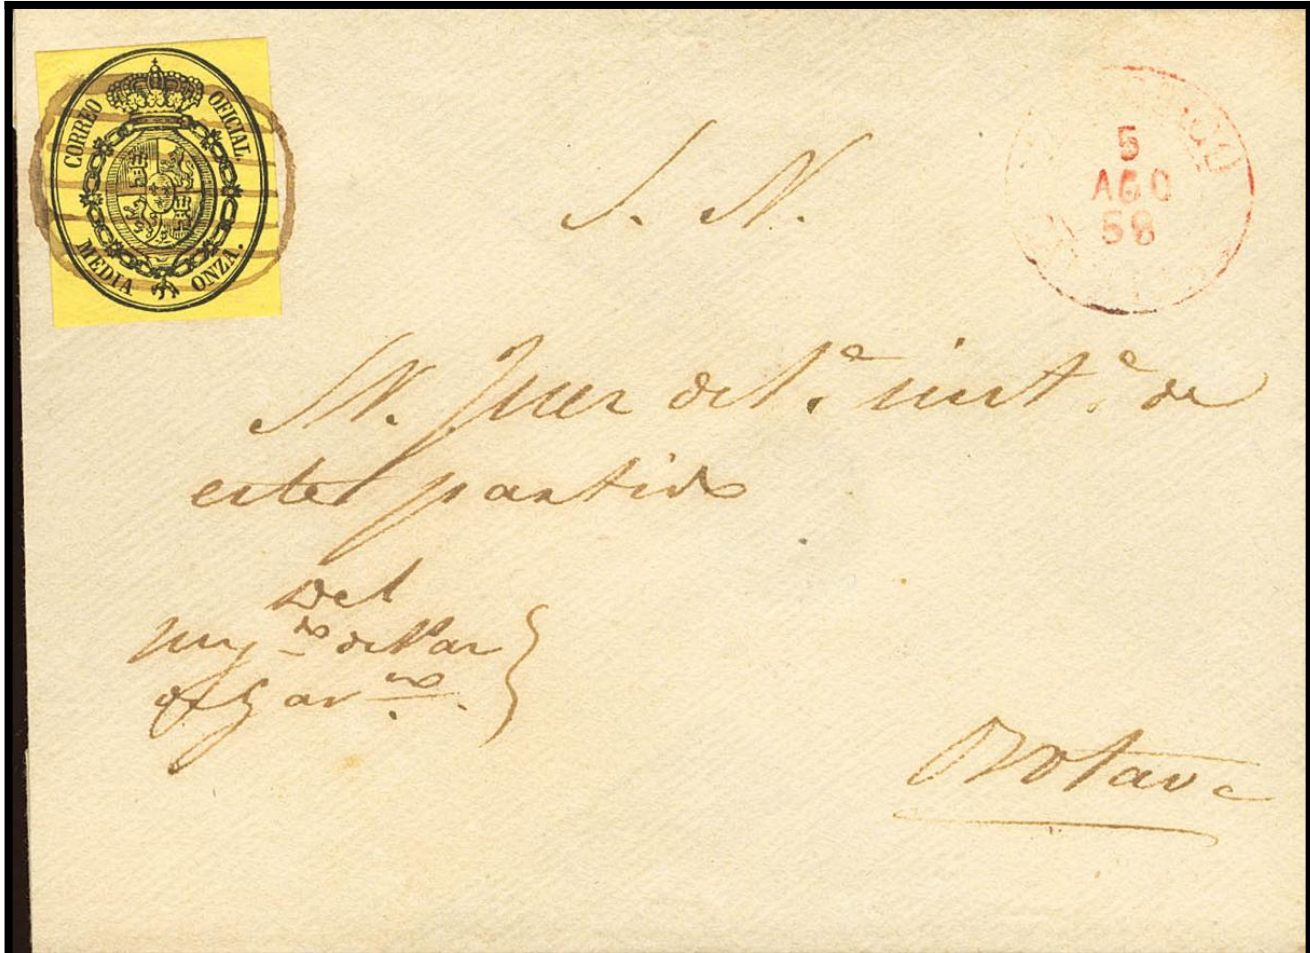 CORREO OFICIAL.
MEDIA ONZA.
5
AGO
58
S. N.
Sr. Juez de 1.ª inst.ª de
este partido
Del
Juzg.do de Paz
Orotava